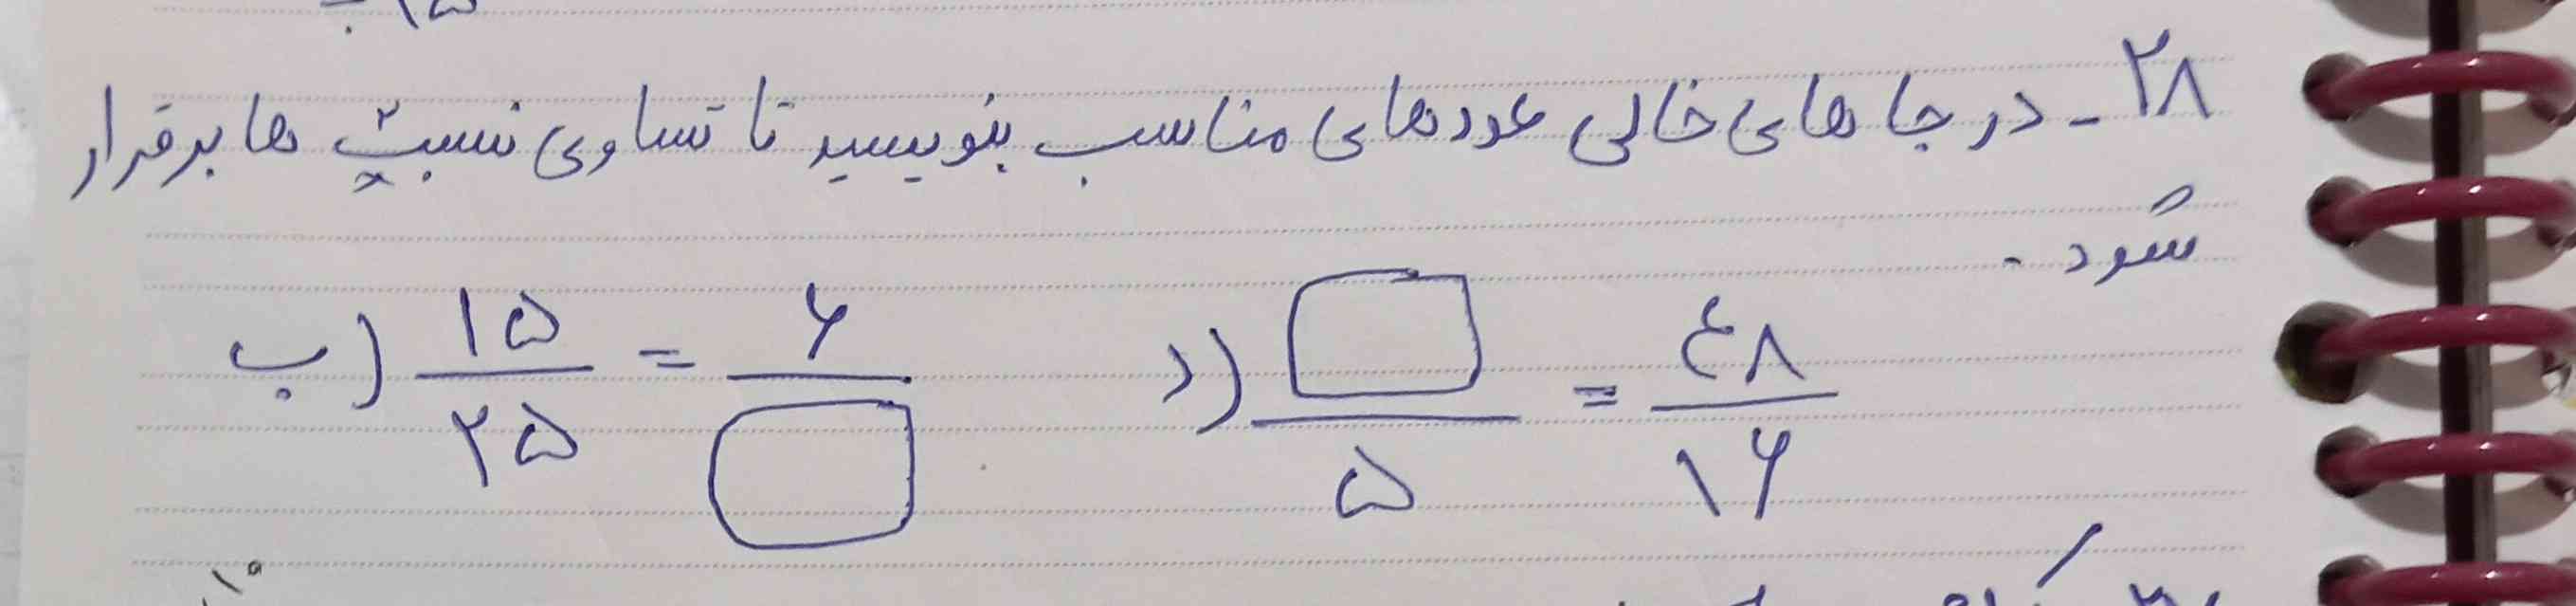 ۲۸ - در جا های خالی عددهای مناسب بنویسید تا تساوی نسبت ها برقرار
شود .
ب) ۱۵/۲۵ = ۶/□ د) □/۵ = ۴۸/۱۶